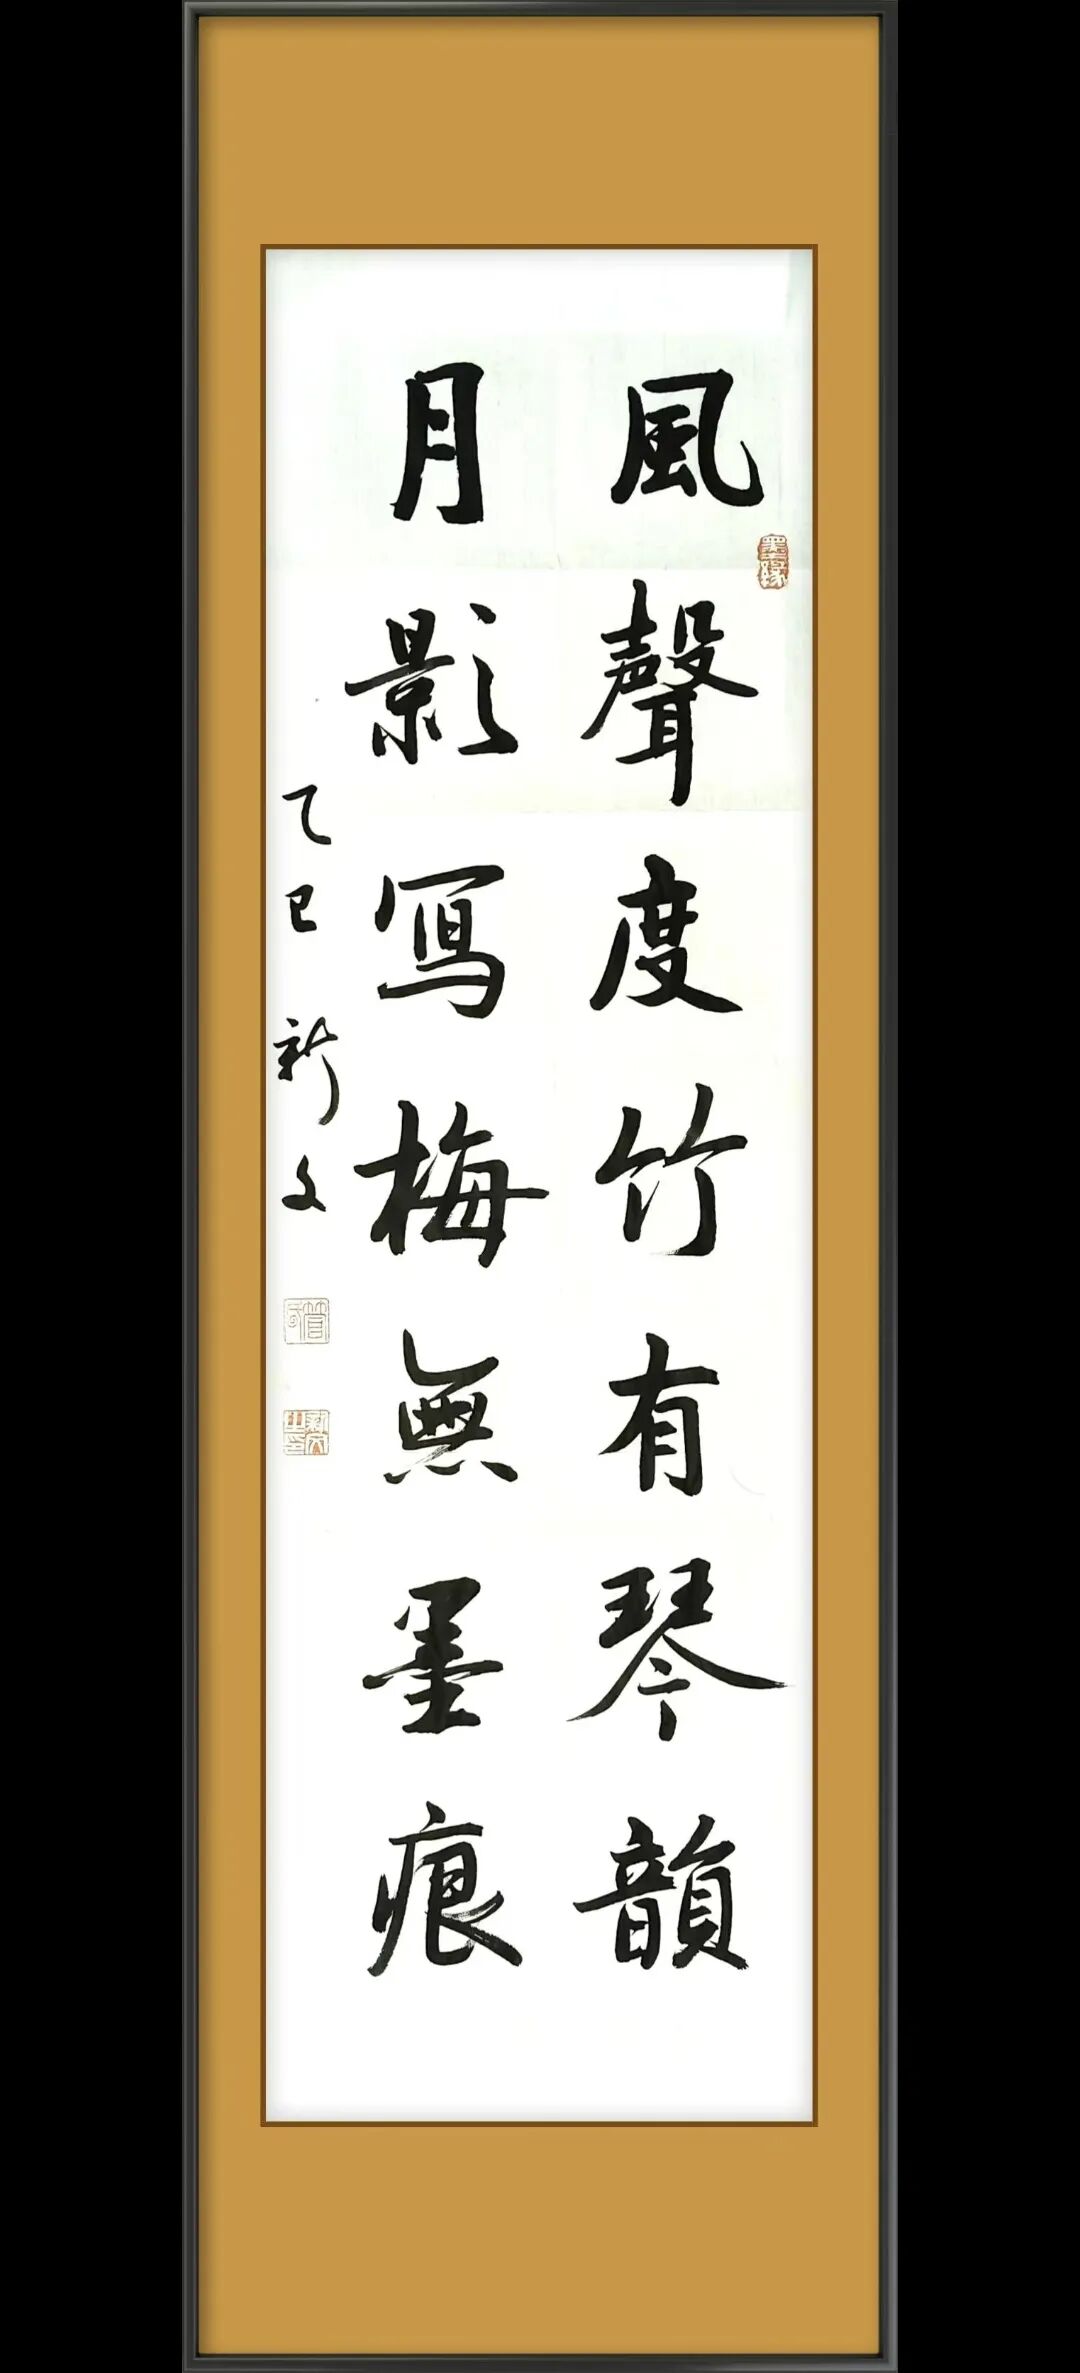 風聲度竹有琴韻
月影寫梅無墨痕
乙巳新文
墨緣